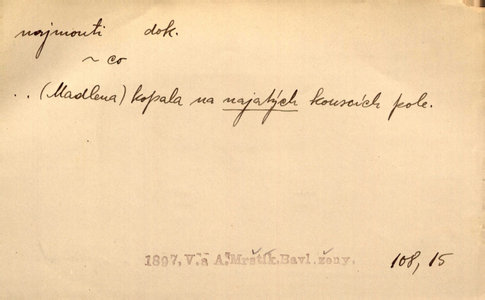 najmouti dok.
~ co
.. (Madlena) kopala na najatých kouscích pole.
1897, V. a A. Mrštík. Bavl. ženy. 108, 15